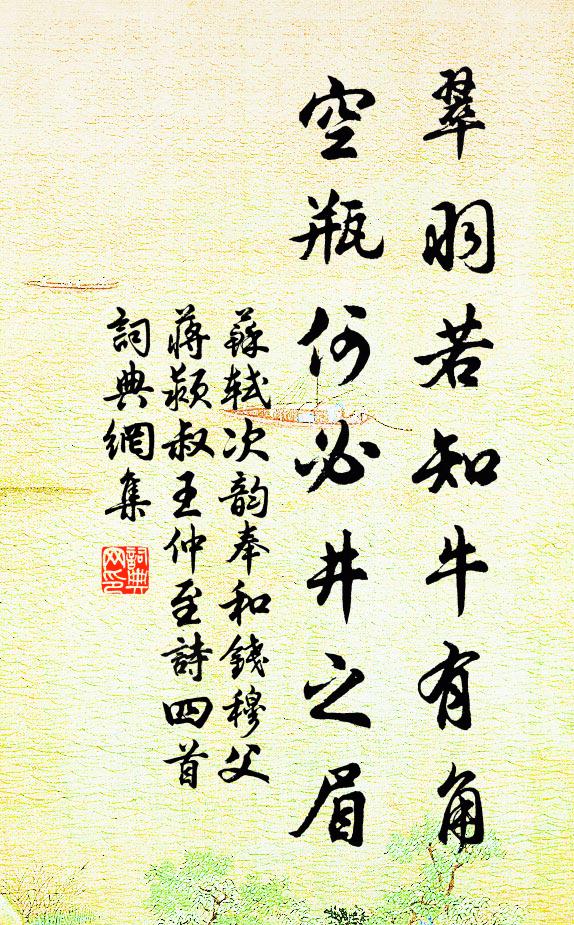 翠羽若知牛有角
空瓶何必井之眉
蘇軾次韵奉和錢穆父
蔣颍叔王仲至詩四首
詞典網集
詞典
网印